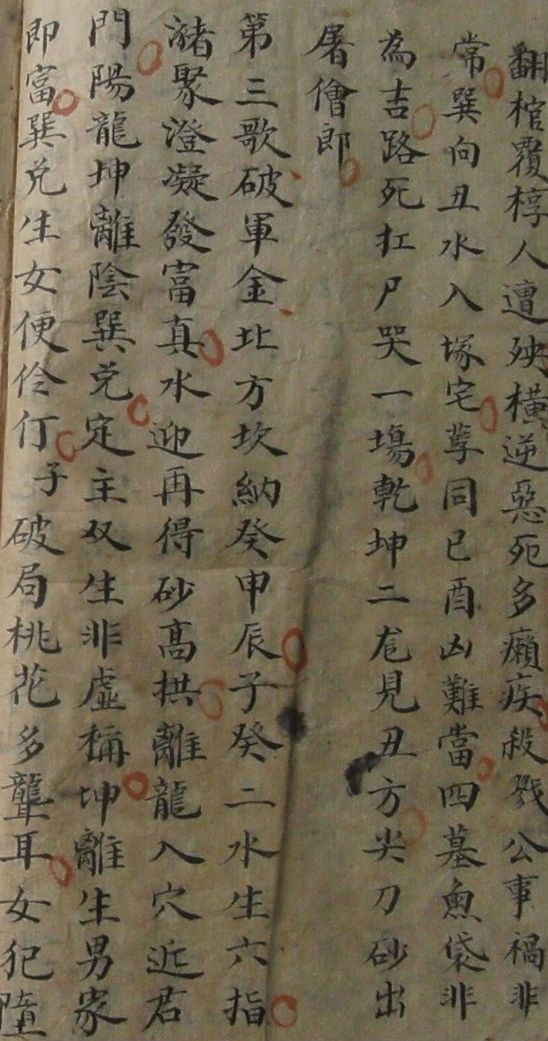 翻棺覆椁人遭殃橫逆惡死多癩疾殺戮公事禍非
常巽向丑水入塚宅孳同巳酉凶難當四墓魚袋非
為吉路死扛尸哭一塲乾坤二尨見丑方尖刀砂出
屠儈郎
第三歌破軍金北方坎納癸申辰子癸二水生六指
潴聚澄凝發富真水迎再得砂高拱離龍入穴近君
門陽龍坤離陰巽兌定主双生非虛稱坤離生男家
即富巽兌生女便伶仃子破局桃花多聾耳女犯墮